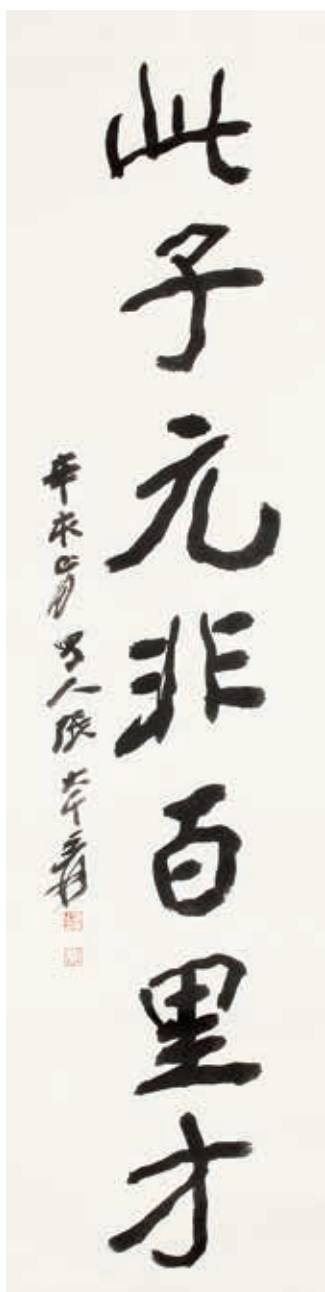 此子元非百里才
辛未 蜀人張大千爰